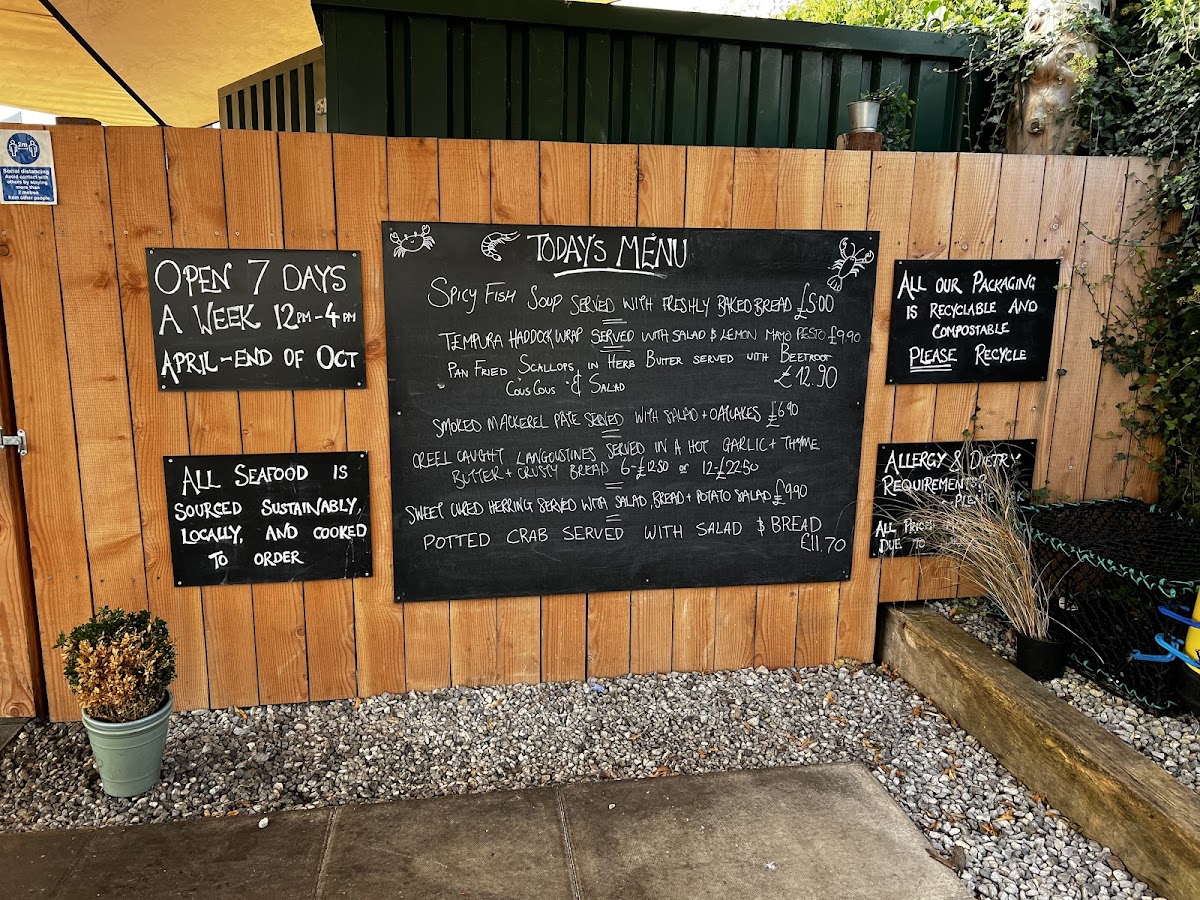 2m
Social distancing
Avoid contact with
others by staying
more than
2 metres
from other people
OPEN 7 DAYS
A WEEK 12PM-4PM
APRIL-END OF OCT
ALL SEAFOOD IS
SOURCED SUSTAINABLY,
LOCALLY, AND COOKED
TO ORDER
TODAY'S MENU
SPICY FISH SOUP SERVED WITH FRESHLY BAKED BREAD £5.00
TEMPURA HADDOCK WRAP SERVED WITH SALAD & LEMON MAYO PESTO £9.90
PAN FRIED SCALLOPS IN HERB BUTTER SERVED WITH BEETROOT
COUS COUS & SALAD £12.90
SMOKED MACKEREL PATE SERVED WITH SALAD + OATCAKES £6.90
CREEL CAUGHT LANGOUSTINES SERVED IN A HOT GARLIC + THYME
BUTTER + CRUSTY BREAD 6-£12.50 or 12-£22.50
SWEET CURED HERRING SERVED WITH SALAD, BREAD + POTATO SALAD £9.90
POTTED CRAB SERVED WITH SALAD & BREAD
£11.70
ALL OUR PACKAGING
IS RECYCLABLE AND
COMPOSTABLE
PLEASE RECYCLE
ALLERGY & DIETRY
REQUIREMENTS
PLEASE ASK
ALL
DUE TO